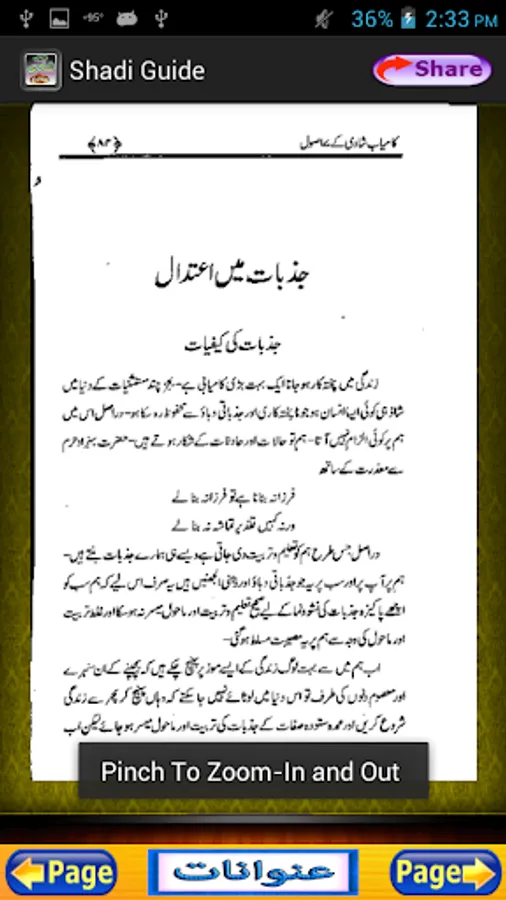 +95°
36%
2:33 PM
Shadi Guide
Share
کامیاب شادی کے ۷ اصول
﴿۸۳﴾
جذبات میں اعتدال
جذبات کی کیفیات
زندگی میں پختہ کار ہو جانا ایک بہت بڑی کامیابی ہے۔ بجز چند مستثنیات کے دنیا میں
شاذ ہی کوئی ایسا انسان ہو جو ناپختہ کاری اور جذباتی دباؤ سے محفوظ رہ سکا ہو۔ دراصل اس میں
ہم پر کوئی الزام نہیں آتا۔ ہم تو حالات اور حادثات کے شکار ہوتے ہیں۔ حضرت بہزاد
سے معذرت کے ساتھ
فرزانہ بنانا ہے تو فرزانہ بنا لے
ورنہ کہیں تقدیر تماشہ نہ بنا لے
دراصل جس طرح ہم کو تعلیم و تربیت دی جاتی ہے ویسے ہی ہمارے جذبات بنتے ہیں۔
ہم پر آپ پر اور سب پر یہ جو جذباتی دباؤ اور ذہنی الجھنیں ہیں یہ صرف اس لیے کہ ہم سب کو
اچھے پاکیزہ جذبات کی نشوونما کے لیے صحیح تعلیم و تربیت اور ماحول میسر نہ ہو سکا اور غلط تربیت
اور ماحول کی وجہ سے ہم پر یہ مصیبت مسلط ہو گئی۔
اب ہم میں سے بہت لوگ زندگی کے ایسے موڑ پر پہنچ چکے ہیں کہ بچپنے کے ان سنہرے
اور معصوم دنوں کی طرف تو اس دنیا میں لوٹائے نہیں جا سکتے کہ وہاں پہنچ کر پھر سے زندگی
شروع کریں اور عمدہ ستودہ صفات کے جذبات کی تربیت اور ماحول میسر ہو جائے لیکن اب
Pinch To Zoom-In and Out
Page
عنوانات
Page